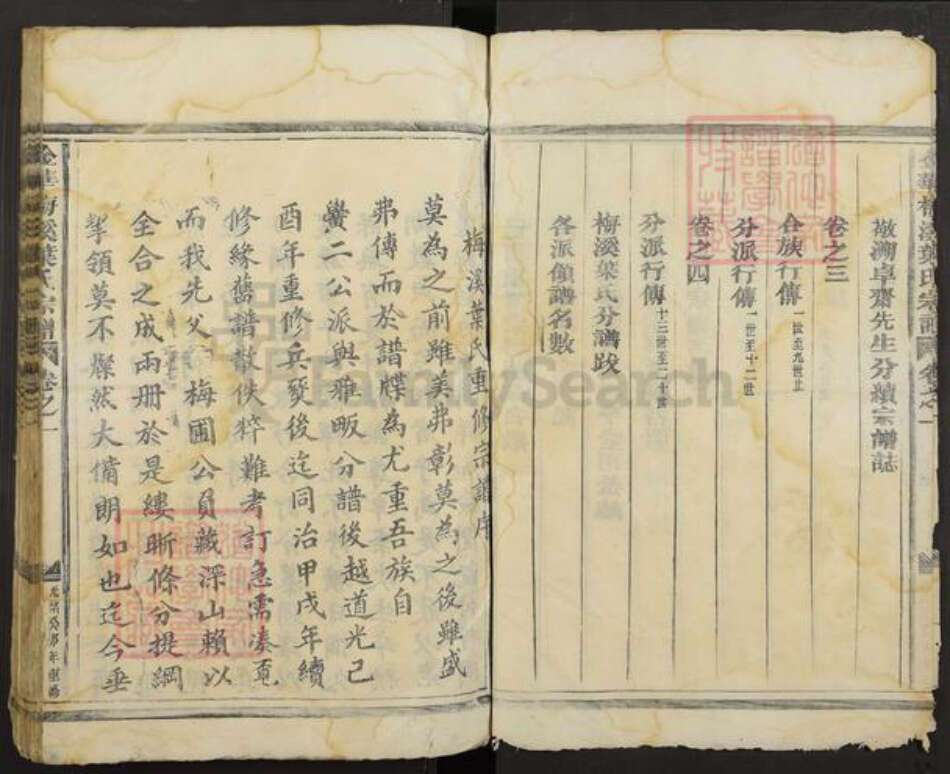 敬溯卓齋先生分績宗譜誌
卷之三
合族行傳 一世至九世止
分派行傳 一世至十二世
卷之四
分派行傳 十三世至二十世
梅溪葉氏分譜跋
各派領譜名數
梅溪葉氏重修宗譜序
莫為之前雖美弗彰莫為之後雖盛
弗傳而於譜牒為尤重吾族自
蠻二公派與雅畈分譜後越道光己
酉年重修兵燹後迄同治甲戌年續
修緣舊譜散佚粹難考訂急需湊頁
而我先父梅圃公員藏深山賴以
全合之成兩冊於是縷晰條分提綱
挈領莫不燦然大備朗如也迄今垂
金華梅溪葉氏宗譜 卷之一
FamilySearch